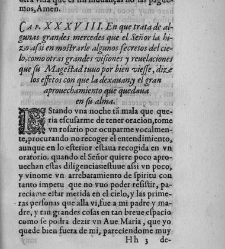 mos, Amen.
Cap. XXXVIII. En que trata de al-
gunas grandes mercedes que el Señor la hi-
zo, assi en mostrarle algunos secretos del cie-
lo, como otras grandes visiones y reuelaciones
que su Magestad tuuo por bien viesse, dize
los efetos con que la dexauan, y el gran
aprouechamiento que quedaua
en su alma.
EStando vna noche tã mala que que-
ria escusarme de tener oracion, tome
vn rosario por ocuparme vocalmen-
te, procurando no recoger el entendimiento,
aunque en lo esterior estaua recogida en vn
oratorio. quando el Señor quiere poco apro-
uechan estas diligencias estuue assi vn poco, y
vinome vn arrebatamiento de spiritu con
tanto impetu que no vuo poder resistir, pa-
reciame estar metida en el cielo, y las prime-
ras personas que alla vi, fue a mi padre y ma-
dre, y tan grandes cosas en tan breue espacio
como se podra dezir vn Aue Maria, que yo
quede bien fuera de mi, pareciendome muy
Hh 3 de-